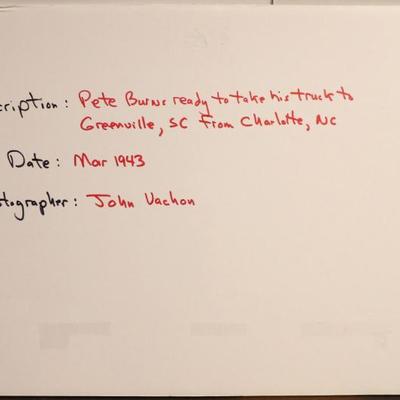 cription: Pete Burns ready to take his truck to
Greenville, SC From Charlotte, NC
Date: Mar 1943
tographer: John Vachon